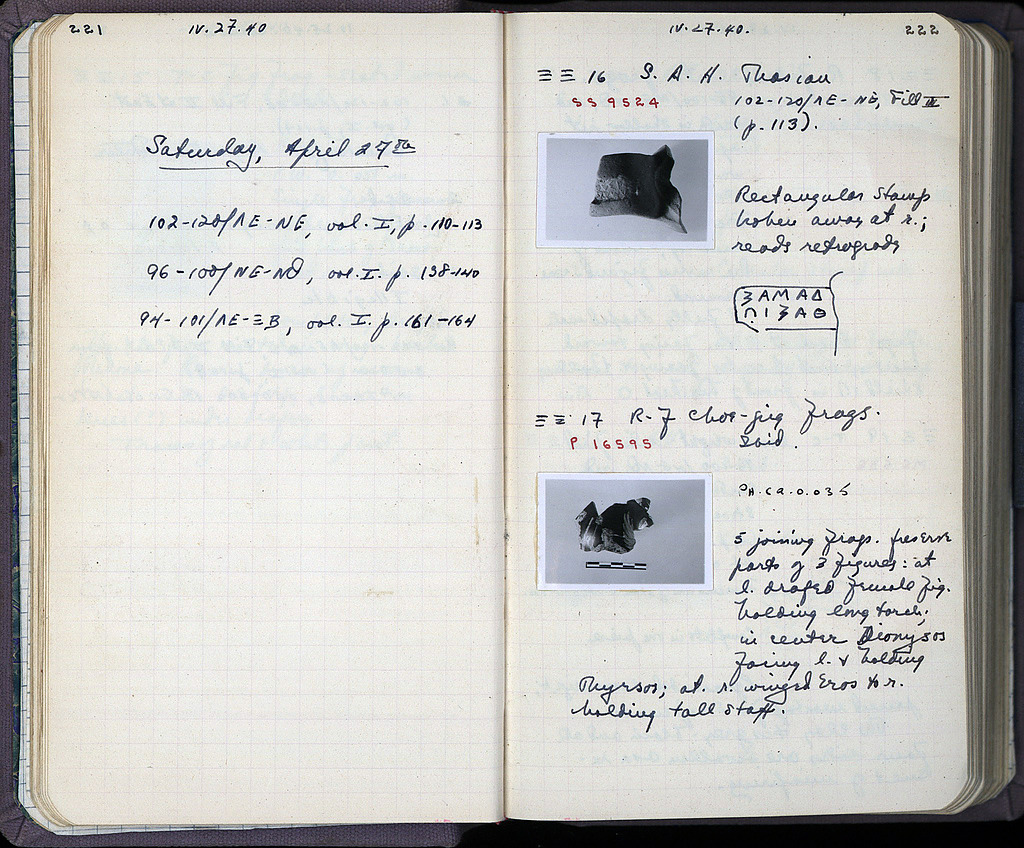 221
IV. 27. 40
Saturday, April 27th
102-120/ΛΕ-ΝΕ, vol. I, p. 110-113
96-100/ΝΕ-ΝΘ, vol. I. p. 138-140
94-101/ΛΕ-ΞΒ, vol. I. p. 161-164
IV. 27. 40.
222
ΞΞ 16 S. A. H. Thasian
SS 9524
102-120/ΛΕ-ΝΕ, Fill II
(p. 113).
Rectangular Stamp
broken away at r.;
reads retrograde
ΑΜΑΔ
ΞΞ 17 R-F choe-jug frags.
P 16595
Said.
PH. ca. 0.035
5 joining frags. preserve
parts of 3 figures: at
l. draped female fig.
holding long torch;
in center Dionysos
facing l. & holding
Thyrsos; at. r. winged Eros to r.
holding tall staff.